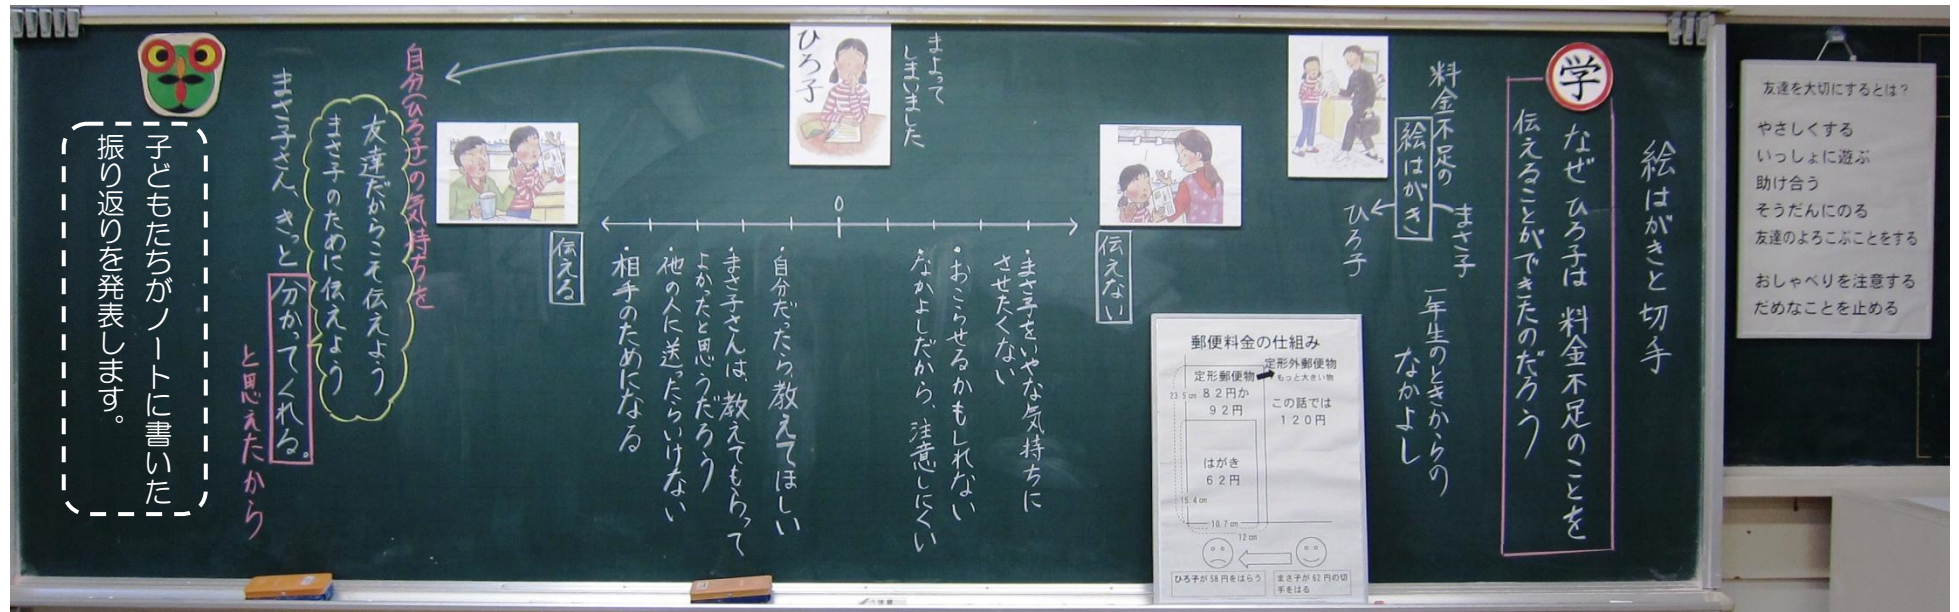 友達を大切にするとは?
やさしくする
いっしょに遊ぶ
助け合う
そうだんにのる
友達のよろこぶことをする
おしゃべりを注意する
だめなことを止める
絵はがきと切手
学
なぜ ひろ子は 料金不足のことを
伝えることができたのだろう
料金不足の
絵はがき
まさ子
ひろ子
一年生のときからの
なかよし
郵便料金の仕組み
定形郵便物
82円か
92円
定形外郵便物
もっと大きい物
この話では
120円
23.5cm
はがき
62円
15.4cm
10.7cm
12cm
ひろ子が58円をはらう
まさ子が62円の切
手をはる
伝えない
・まさ子をいやな気持ちに
させたくない
・おこらせるかもしれない
・なかよしだから、注意しにくい
まよって
しまいました
ひろ子
0
・自分だったら、教えてほしい
・まさ子さんは、教えてもらって
よかったと思うだろう
・他の人に送ったらいけない
・相手のためになる
伝える
自分(ひろ子)の気持ちを
友達だからこそ伝えよう
まさ子のために伝えよう
まさ子さん、きっと分かってくれる。
と思えたから
子どもたちがノートに書いた
振り返りを発表します。